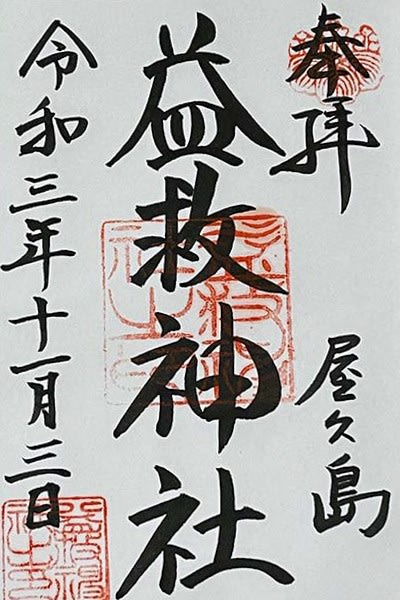 奉拝
屋久島
益救神社
令和三年十一月三日